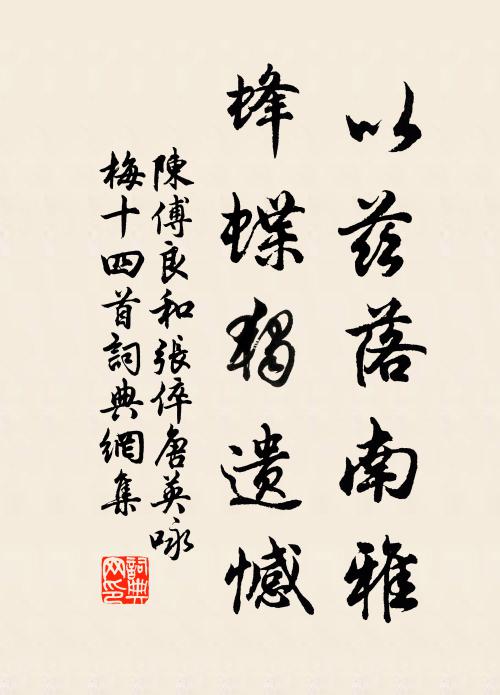 以茲落南雅
蜂蝶獨遺憾
陳傅良和張倅唐英咏
梅十四首詞典網集
詞典網印